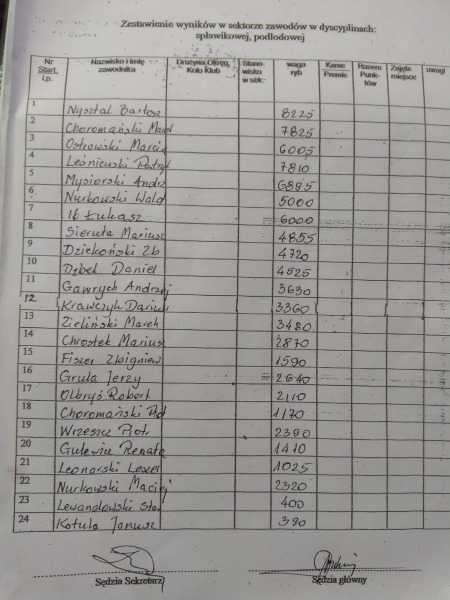 Zestawienie wyników w sektorze zawodów w dyscyplinach:
spławikowej, podlodowej
Nr Start. Lp. Nazwisko i imię zawodnika Drużyna-Okręg, Koło Klub Stano-wisko w sek. waga ryb Karne Premie Razem Punk-tów Zajęte miejsce uwagi
1 Nysztal Bartosz 8225
2 Choromański Marek 7825
3 Ostrowski Marcin 6005
4 Leśniewski Patryk 7810
5 Mysiorski Andrz 6895
6 Nurkowski Wald 5000
7 Łukasz 6000
8 Sieruta Mariusz 4855
9 Dziekoński Zb 4720
10 Dąbek Daniel 4525
11 Gawrych Andrzej 3630
12 Krawczyk Dariusz 3360
13 Zieliński Marek 3480
14 Chrostek Mariusz 2870
15 Fiszer Zbigniew 1590
16 Gruła Jerzy 2640
17 Olbryś Robert 2110
18 Choromański 1170
19 Wrzeszcz Piotr 2390
20 Gulewicz Renata 1410
21 Leonarski Leszek 1025
22 Nurkowski Maciej 2320
23 Lewandowski Sta 400
24 Kotula Janusz 390
Sędzia Sekretarz Sędzia główny